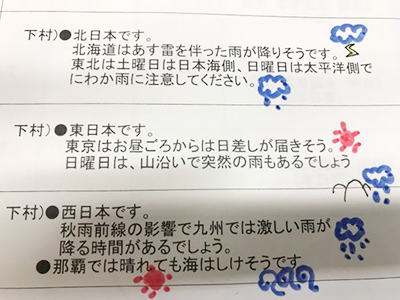 下村)●北日本です。
北海道はあす雷を伴った雨が降りそうです。
東北は土曜日は日本海側、日曜日は太平洋側で
にわか雨に注意してください。
下村)●東日本です。
東京はお昼ごろからは日差しが届きそう。
日曜日は、山沿いで突然の雨もあるでしょう
下村)●西日本です。
秋雨前線の影響で九州では激しい雨が
降る時間があるでしょう。
●那覇では晴れても海はしけそうです